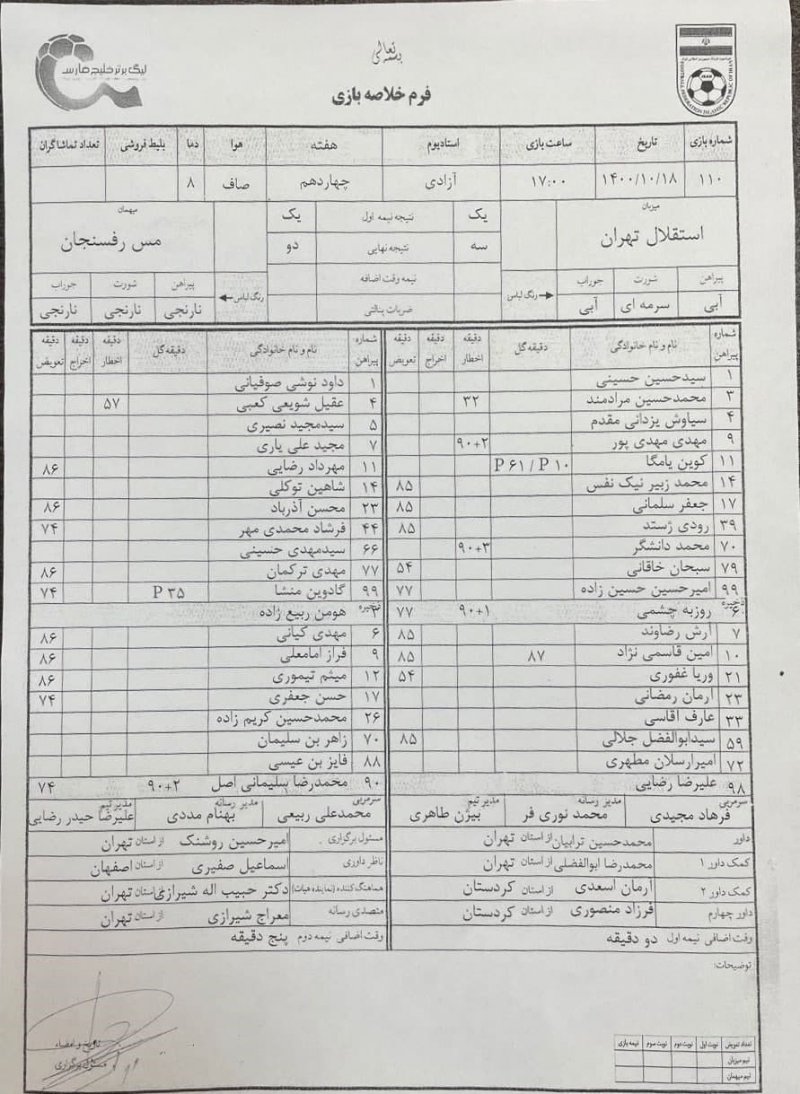 بسمه تعالی
لیگ برتر خلیج فارس
FOOTBALL FEDERATION ISLAMIC REPUBLIC OF IRAN
فرم خلاصه بازی
شماره بازی تاریخ ساعت بازی استادیوم هفته هوا دما بلیط فروشی تعداد تماشاگران
۱۱۰ ۱۴۰۰/۱۰/۱۸ ۱۷:۰۰ آزادی چهاردهم صاف ۸
میزبان
استقلال تهران
یک نتیجه نیمه اول یک
سه نتیجه نهایی دو
نیمه وقت اضافه
ضربات پنالتی
میهمان
مس رفسنجان
پیراهن شورت جوراب
آبی سرمه ای آبی
رنگ لباس
پیراهن شورت جوراب
نارنجی نارنجی نارنجی
رنگ لباس
شماره پیراهن نام و نام خانوادگی دقیقه گل دقیقه اخطار دقیقه اخراج دقیقه تعویض
۱ سیدحسین حسینی
۳ محمدحسین مرادمند ۳۲
۴ سیاوش یزدانی مقدم
۹ مهدی مهدی پور ۹۰+۲
۱۱ کوین یامگا P ۶۱ / P ۱۰
۱۴ محمد زبیر نیک نفس ۸۵
۱۷ جعفر سلمانی ۸۵
۳۹ رودی ژستد ۸۵
۷۰ محمد دانشگر ۹۰+۳
۷۹ سبحان خاقانی ۵۴
۹۹ امیرحسین حسین زاده ۷۷
ذخیره
۶ روزبه چشمی ۹۰+۱ ۷۷
۷ آرش رضاوند ۸۵
۱۰ امین قاسمی نژاد ۸۷ ۸۵
۲۱ وریا غفوری ۵۴
۲۳ آرمان رمضانی
۳۳ عارف آقاسی
۵۹ سیدابوالفضل جلالی ۸۵
۷۲ امیرارسلان مطهری
۹۸ علیرضا رضایی
سرپرستی فرهاد مجیدی مدیر رسانه محمد نوری فر مدیر تیم بیژن طاهری
شماره پیراهن نام و نام خانوادگی دقیقه گل دقیقه اخطار دقیقه اخراج دقیقه تعویض
۱ داود نوشی صوفیانی
۴ عقیل شویعی کعبی ۵۷
۵ سیدمجید نصیری
۷ مجید علی یاری
۱۱ مهرداد رضایی ۸۶
۱۴ شاهین توکلی
۲۳ محسن آذرباد ۸۶
۴۴ فرشاد محمدی مهر ۷۴
۶۶ سیدمهدی حسینی
۷۷ مهدی ترکمان ۸۶
۹۹ گادوین منشا P ۳۵ ۷۴
ذخیره
هومن ربیع زاده
۶ مهدی کیانی ۸۶
۹ فراز امامعلی ۸۶
۱۲ میثم تیموری ۸۶
۱۷ حسن جعفری ۷۴
۲۶ محمدحسین کریم زاده
۷۰ زاهر بن سلیمان
۸۸ فایز بن عیسی
۹۰ محمدرضا سلیمانی اصل ۹۰+۲ ۷۴
سرمربی محمدعلی ربیعی مدیر رسانه بهنام مددی مدیر تیم علیرضا حیدر رضایی
داور محمدحسین ترابیان از استان تهران
کمک داور ۱ محمدرضا ابوالفضلی از استان تهران
کمک داور ۲ آرمان اسعدی از استان کردستان
داور چهارم فرزاد منصوری از استان کردستان
وقت اضافی نیمه اول دو دقیقه
مسئول برگزاری امیرحسین روشنک از استان تهران
ناظر داوری اسماعیل صفیری از استان اصفهان
هماهنگ کننده (نماینده هیات) دکتر حبیب اله شیرازی از استان تهران
متصدی رسانه معراج شیرازی از استان تهران
وقت اضافی نیمه دوم پنج دقیقه
توضیحات:
تاریخ و امضاء
مسئول برگزاری
تعداد تعویض نوبت اول نوبت دوم نوبت سوم نیمه بازی
تیم میزبان
تیم میهمان